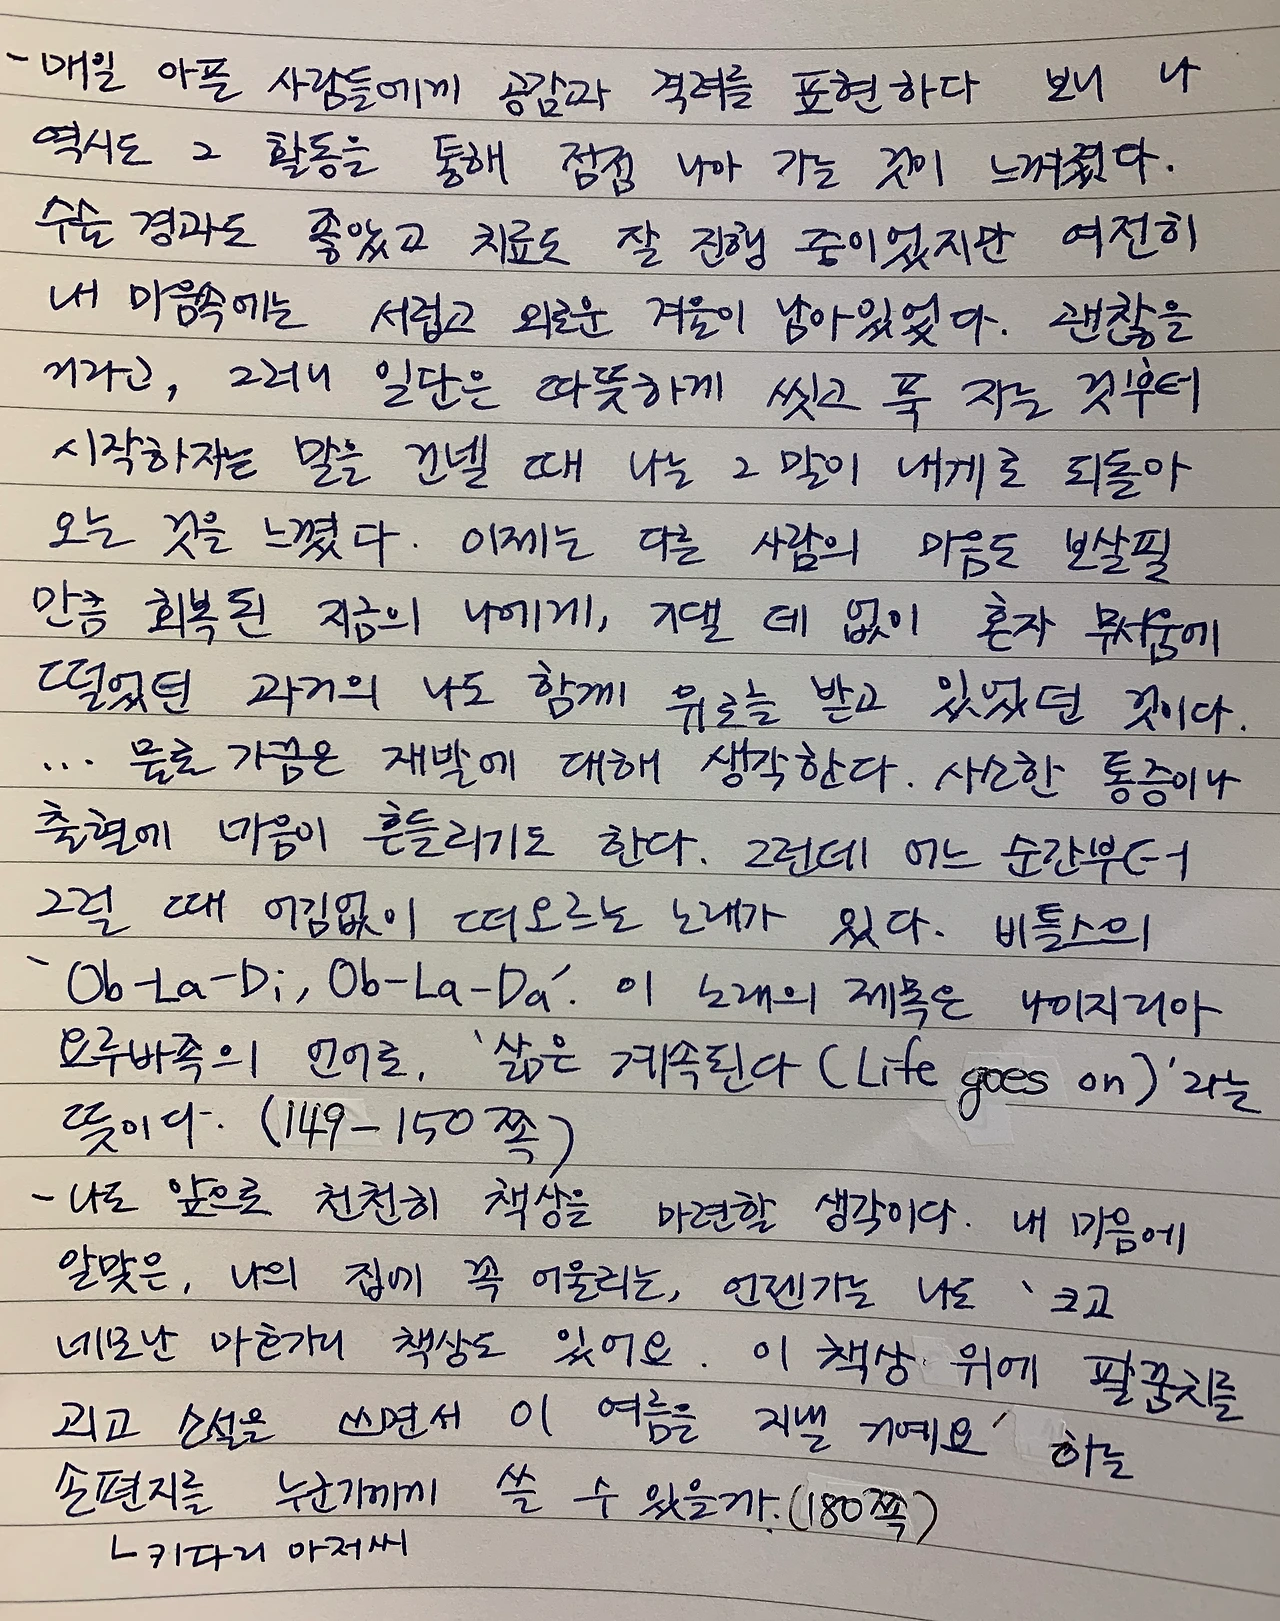 - 매일 아픈 사람들에게 공감과 격려를 표현하다 보니 나
역시도 그 활동을 통해 점점 나아 가는 것이 느껴졌다.
수술 경과도 좋았고 치료도 잘 진행 중이었지만 여전히
내 마음속에는 서럽고 외로운 겨울이 남아있었다. 괜찮을
거라고, 그러니 일단은 따뜻하게 씻고 푹 자는 것부터
시작하자는 말을 건넬 때 나는 그 말이 내게로 되돌아
오는 것을 느꼈다. 이제는 다른 사람의 마음도 보살필
만큼 회복된 지금의 나에게, 기댈 데 없이 혼자 무서움에
떨었던 과거의 나도 함께 위로를 받고 있었던 것이다.
... 물론 가끔은 재발에 대해 생각한다. 사소한 통증이나
출혈에 마음이 흔들리기도 한다. 그런데 어느 순간부터
그럴 때 어김없이 떠오르는 노래가 있다. 비틀스의
`Ob-La-Di, Ob-La-Da´. 이 노래의 제목은 나이지리아
요루바족의 언어로, '삶은 계속된다 (Life goes on)'라는
뜻이다. (149-150쪽)
- 나도 앞으로 천천히 책상을 마련할 생각이다. 내 마음에
알맞은, 나의 집에 꼭 어울리는, 언젠가는 나도 `크고
네모난 마호가니 책상도 있어요. 이 책상 위에 팔꿈치를
괴고 소설을 쓰면서 이 여름을 지낼 거예요´ 하는
손편지를 누군가에게 쓸 수 있을까. (180쪽)
ㄴ키다리 아저씨